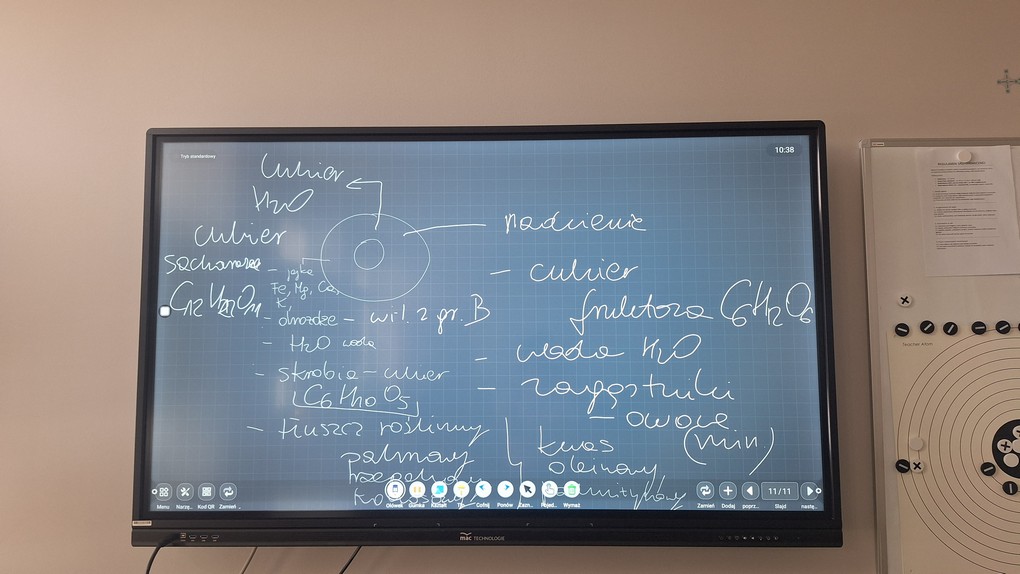 Tryb standardowy
10:38
Cukier
H2O
nadzienie
cukier
sacharoza
C12H22O11
- jajka
Fe, Mg, Ca,
K,
- drożdże - wit. z gr. B
- H2O woda
- skrobia - cukier
(C6H10O5)
- tłuszcz roślinny
palmowy
rzepakowy
kokosowy
- cukier
fruktoza C6H12O6
- woda H2O
- zagęstniki
- owoce
(min)
kwas
oleinowy
palmitynowy
Menu
Narzę...
Kod QR
Zamień
Ołówek
Gumka
Kształt
Cofnij
Ponów
Zazn...
Pojed...
Wymaż
Zamień
Dodaj
poprz...
11/11
Slajd
nastę...
mac TECHNOLOGIE